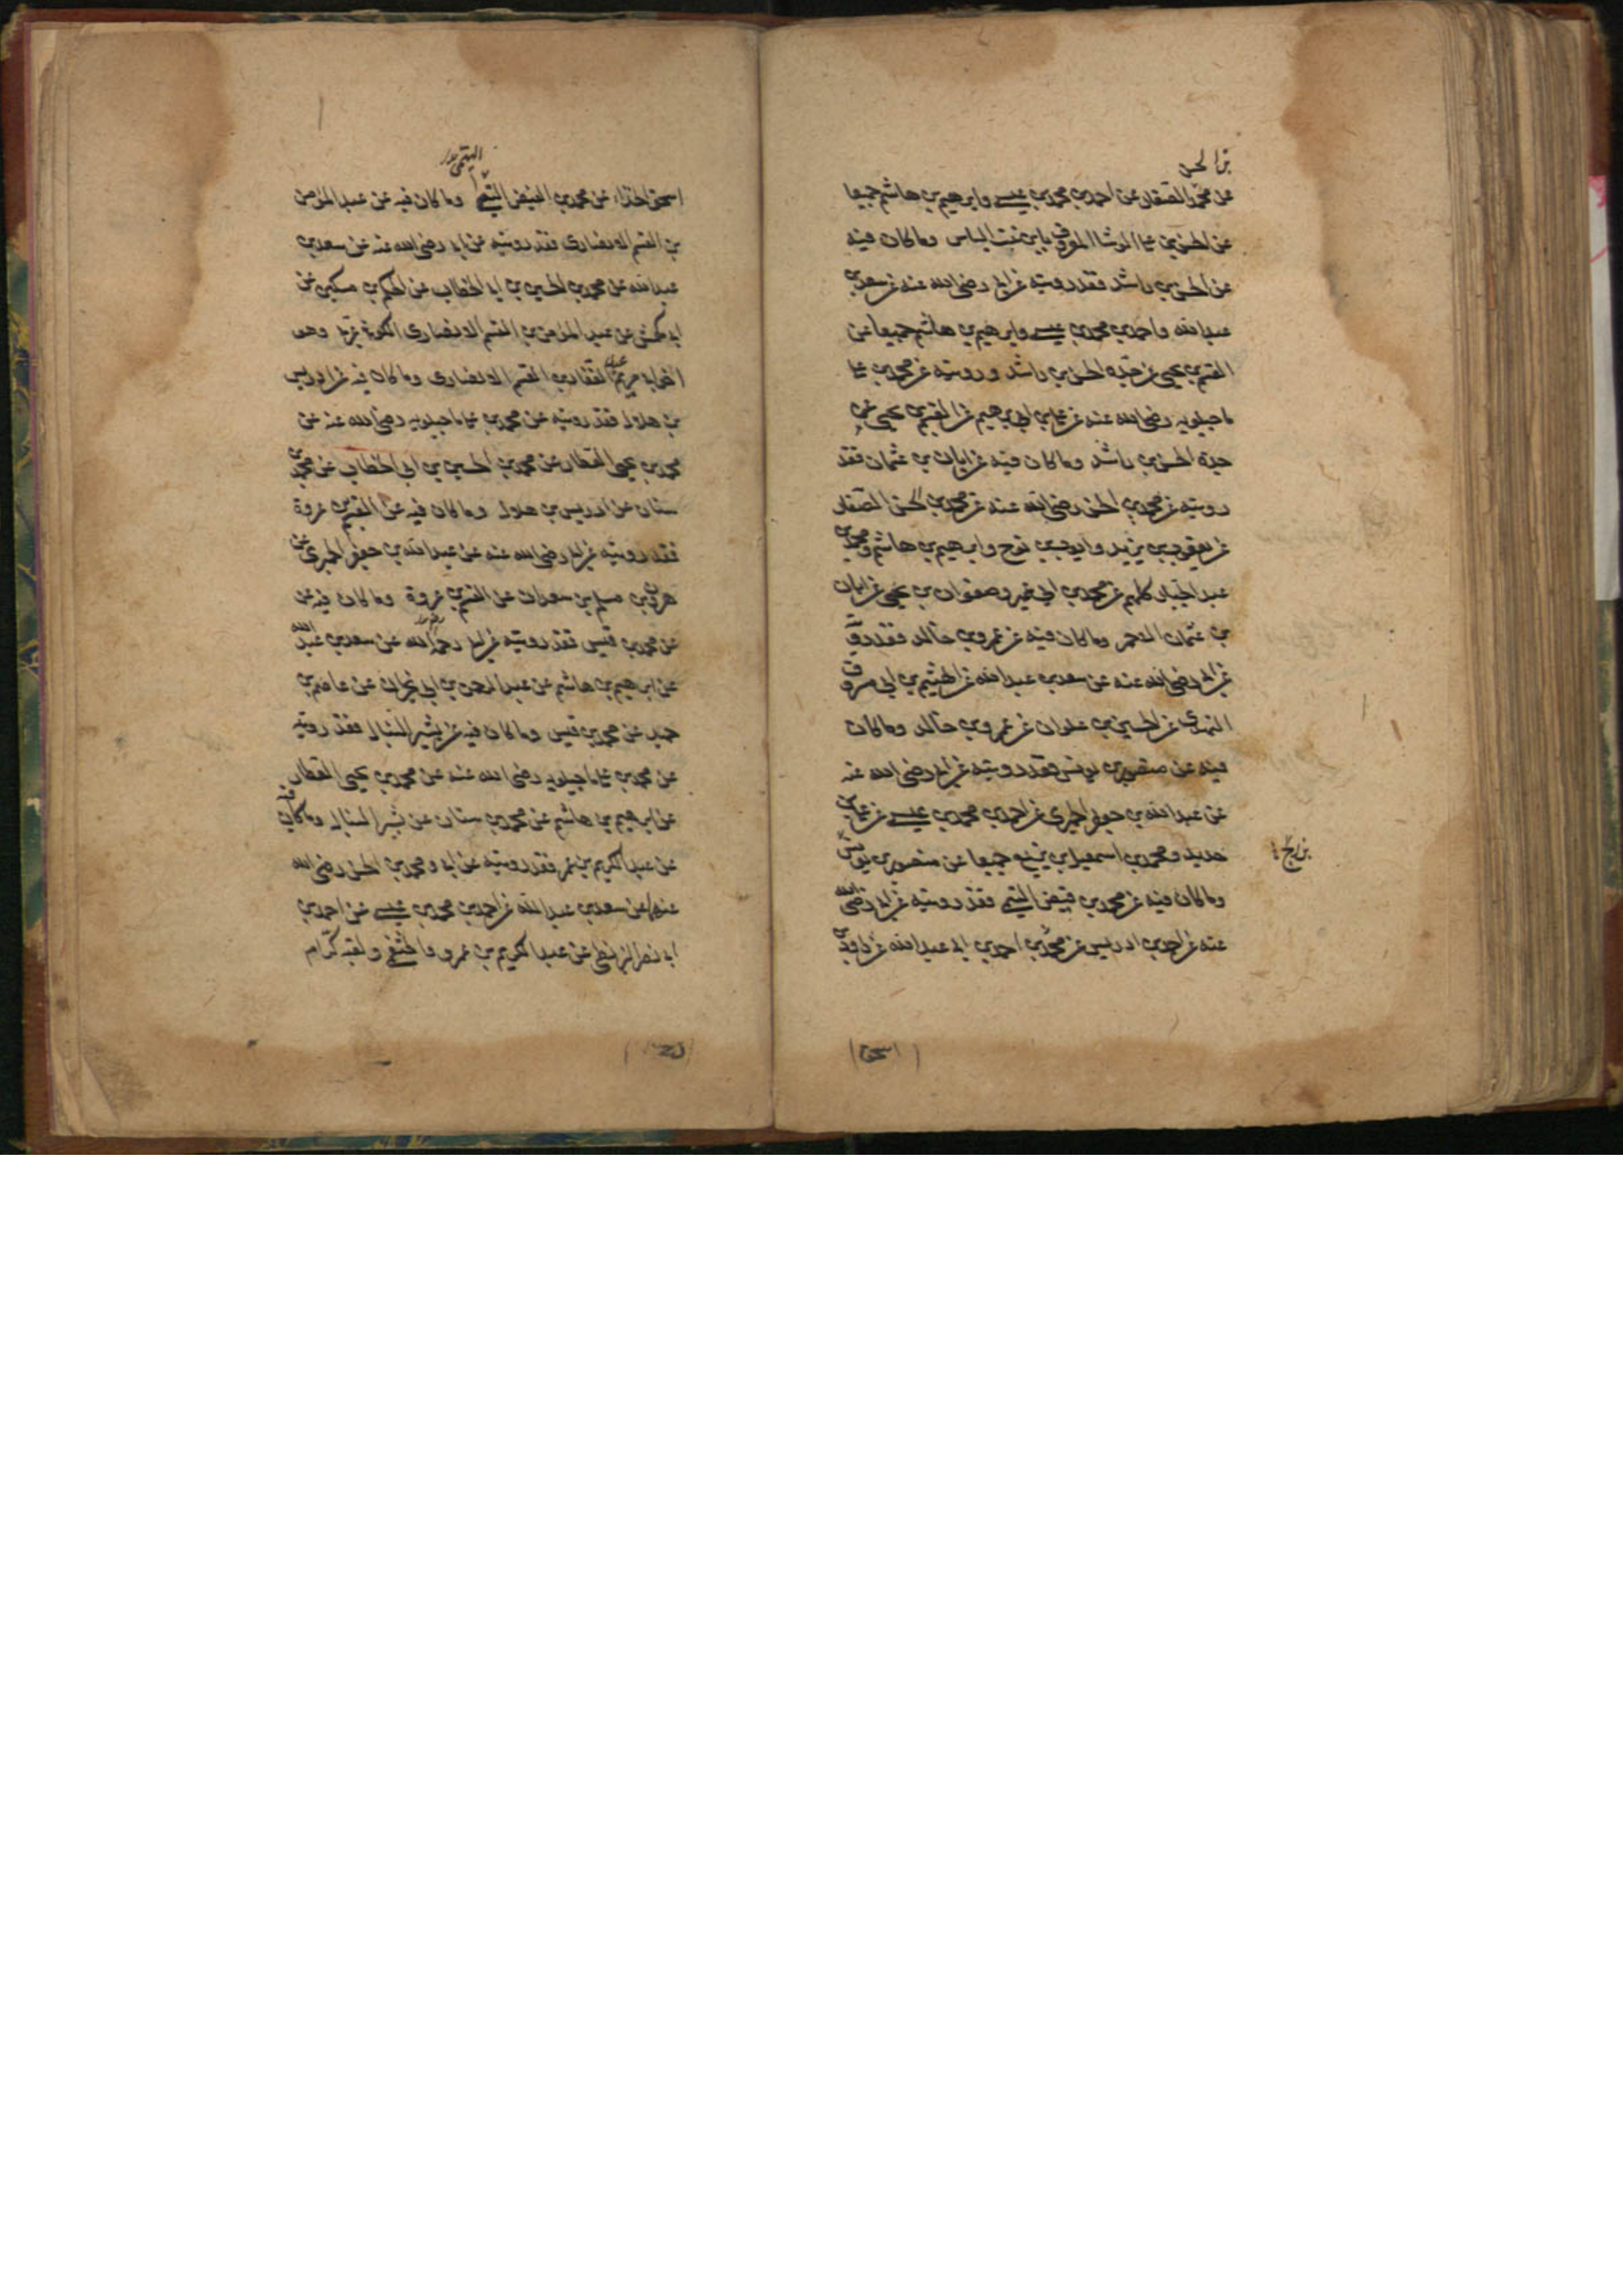 بن الحسن
عن محمد الصفار عن احمد بن محمد بن عيسى وابرهيم بن هاشم جميعا
عن الحسن بن علي الوشا المعروف بابن بنت الياس وما كان فيه
عن الحسن بن راشد فقد رويته عن ابي رضي الله عنه عن سعد بن
عبد الله واحمد بن محمد بن عيسى وابرهيم بن هاشم جميعا عن
القسم بن يحيى عن جده الحسن بن راشد ورويته عن محمد بن علي
ماجيلويه رضي الله عنه عن علي بن ابرهيم عن القسم بن يحيى عن
جده الحسن بن راشد وما كان فيه عن ابان بن عثمان فقد
رويته عن محمد بن الحسن رضي الله عنه عن محمد بن الحسن الصفار
عن يعقوب بن يزيد وايوب بن نوح وابرهيم بن هاشم ومحمد بن
عبد الجبار كلهم عن محمد بن ابي عمير وصفوان بن يحيى عن ابان
بن عثمان الاحمر وما كان فيه عن عمرو بن خالد فقد رويته
عن ابي رضي الله عنه عن سعد بن عبد الله عن الهيثم بن ابي مسروق
النهدي عن الحسين بن علوان عن عمرو بن خالد وما كان
فيه عن منصور بن يونس فقد رويته عن ابي رضي الله عنه
عن عبد الله بن جعفر الحميري عن احمد بن محمد بن عيسى عن علي بن
حديد ومحمد بن اسمعيل بن بزيع جميعا عن منصور بن يونس
بزرج
وما كان فيه عن محمد بن فيض التيمي فقد رويته عن ابي رضي الله
عنه عن احمد بن ادريس عن محمد بن احمد بن ابي عبد الله عن داود بن
اسحق
التيمي
اسحق الحذاء عن محمد بن الفيض التيمي وما كان فيه عن عبد المؤمن
بن القسم الانصاري فقد رويته عن ابي رضي الله عنه عن سعد بن
عبد الله عن محمد بن الحسين بن ابي الخطاب عن الحكم بن مسكين عن
ابي كهمش عن عبد المؤمن بن القسم الانصاري الكوفي عربي وهو
اخو ابي مريم عبد الغفار بن القسم الانصاري وما كان فيه عن ادريس
بن هلال فقد رويته عن محمد بن علي ماجيلويه رضي الله عنه عن
محمد بن يحيى العطار عن محمد بن الحسين بن ابي الخطاب عن محمد بن
سنان عن ادريس بن هلال وما كان فيه عن القسم بن عروة
فقد رويته عن ابي رضي الله عنه عن عبد الله بن جعفر الحميري عن
هرون بن مسلم بن سعدان عن القسم بن عروة وما كان فيه عن
عن محمد بن قيس فقد رويته عن ابي رحمه الله عن سعد بن عبد الله
عن ابرهيم بن هاشم عن عبد الرحمن بن ابي نجران عن عاصم بن
حميد عن محمد بن قيس وما كان فيه عن بشير النبال فقد رويته
عن محمد بن علي ماجيلويه رضي الله عنه عن محمد بن يحيى العطار
عن ابرهيم بن هاشم عن محمد بن سنان عن بشير النبال وما كان فيه
عن عبد الكريم بن عمرو فقد رويته عن ابي ومحمد بن الحسن رضي الله
عنهما عن سعد بن عبد الله عن احمد بن محمد بن عيسى عن احمد بن
ابي نصر البزنطي عن عبد الكريم بن عمرو الخثعمي ولقبه كرام